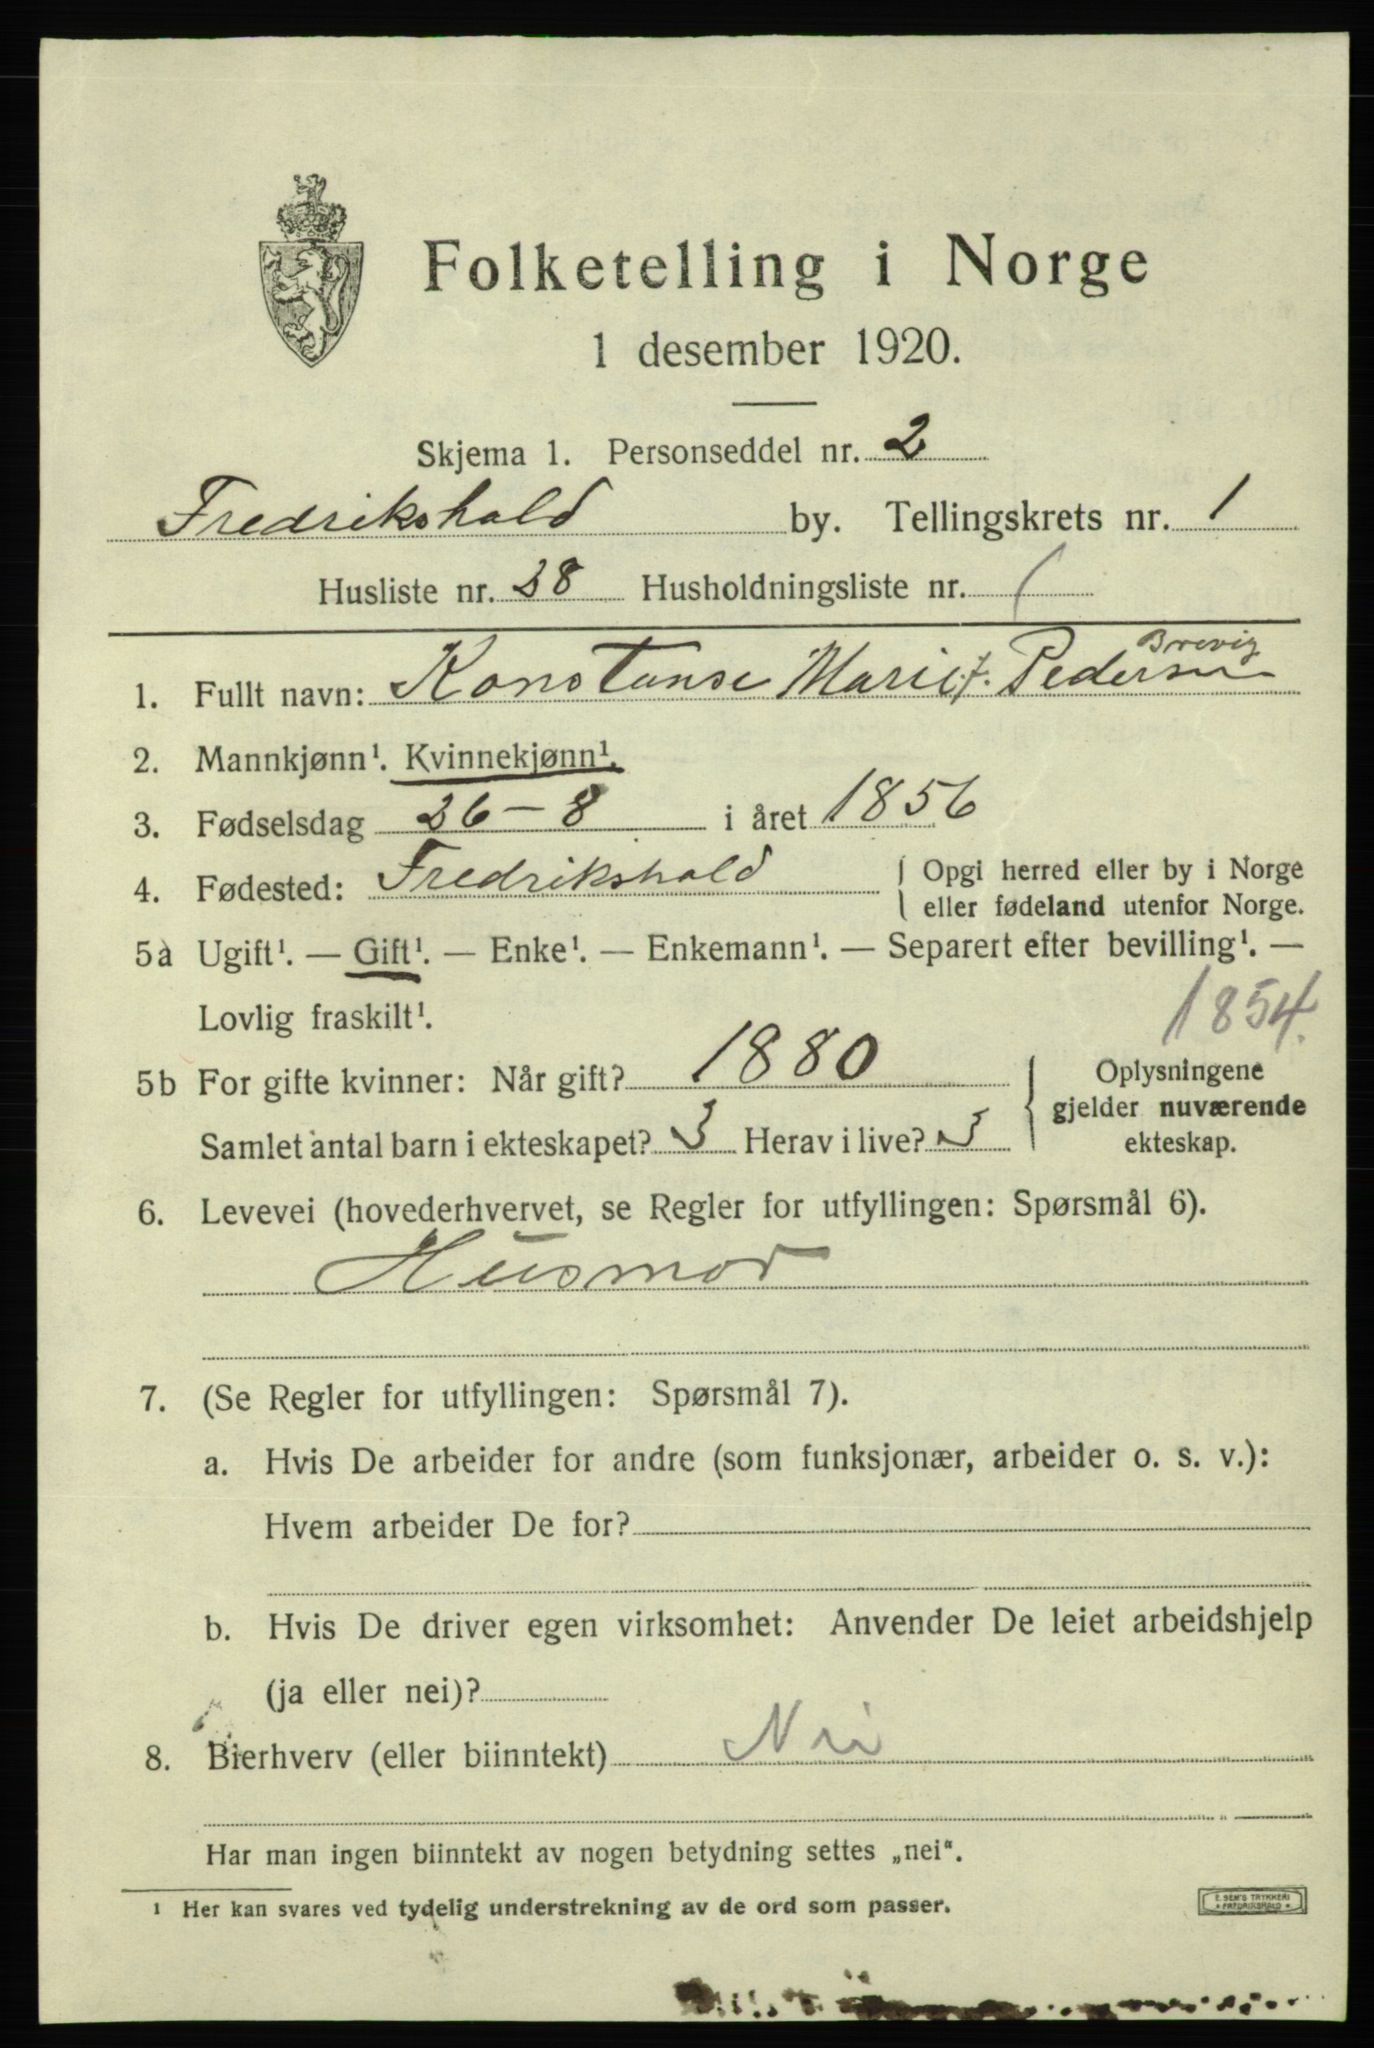 Folketelling i Norge
1 desember 1920.
Skjema 1. Personseddel nr. 2
Fredrikshald by. Tellingskrets nr. 1
Husliste nr. 28 Husholdningsliste nr. 1
Brevig
1. Fullt navn: Konstanse Marie f. Pedersen
2. Mannkjønn¹. Kvinnekjønn¹.
3. Fødselsdag 26-8 i året 1856
4. Fødested: Fredrikshald { Opgi herred eller by i Norge
eller fødeland utenfor Norge.
5a Ugift¹. — Gift¹. — Enke¹. — Enkemann¹. — Separert efter bevilling¹. —
Lovlig fraskilt¹. 1854.
5b For gifte kvinner: Når gift? 1880 { Oplysningene
gjelder nuværende
Samlet antal barn i ekteskapet? 3 Herav i live? 3 ekteskap.
6. Levevei (hovederhvervet, se Regler for utfyllingen: Spørsmål 6).
Husmor
7. (Se Regler for utfyllingen: Spørsmål 7).
a. Hvis De arbeider for andre (som funksjonær, arbeider o. s. v.):
Hvem arbeider De for?
b. Hvis De driver egen virksomhet: Anvender De leiet arbeidshjelp
(ja eller nei)?
8. Bierhverv (eller biinntekt) Nei
Har man ingen biinntekt av nogen betydning settes „nei“.
¹ Her kan svares ved tydelig understrekning av de ord som passer.
E. SEM'S TRYKKERI
* FREDRIKSHALD *